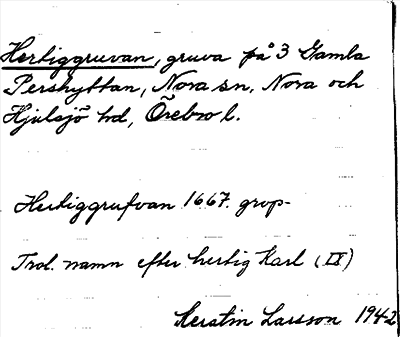 Hertiggruvan, gruva på 3 Gamla
Pershyttan, Nora sn, Nora och
Hjulsjö hd, Örebro l.
Hertiggrufvan 1667. grvp-
Trol. namn efter hertig Karl (IX)
Kerstin Larsson 1942